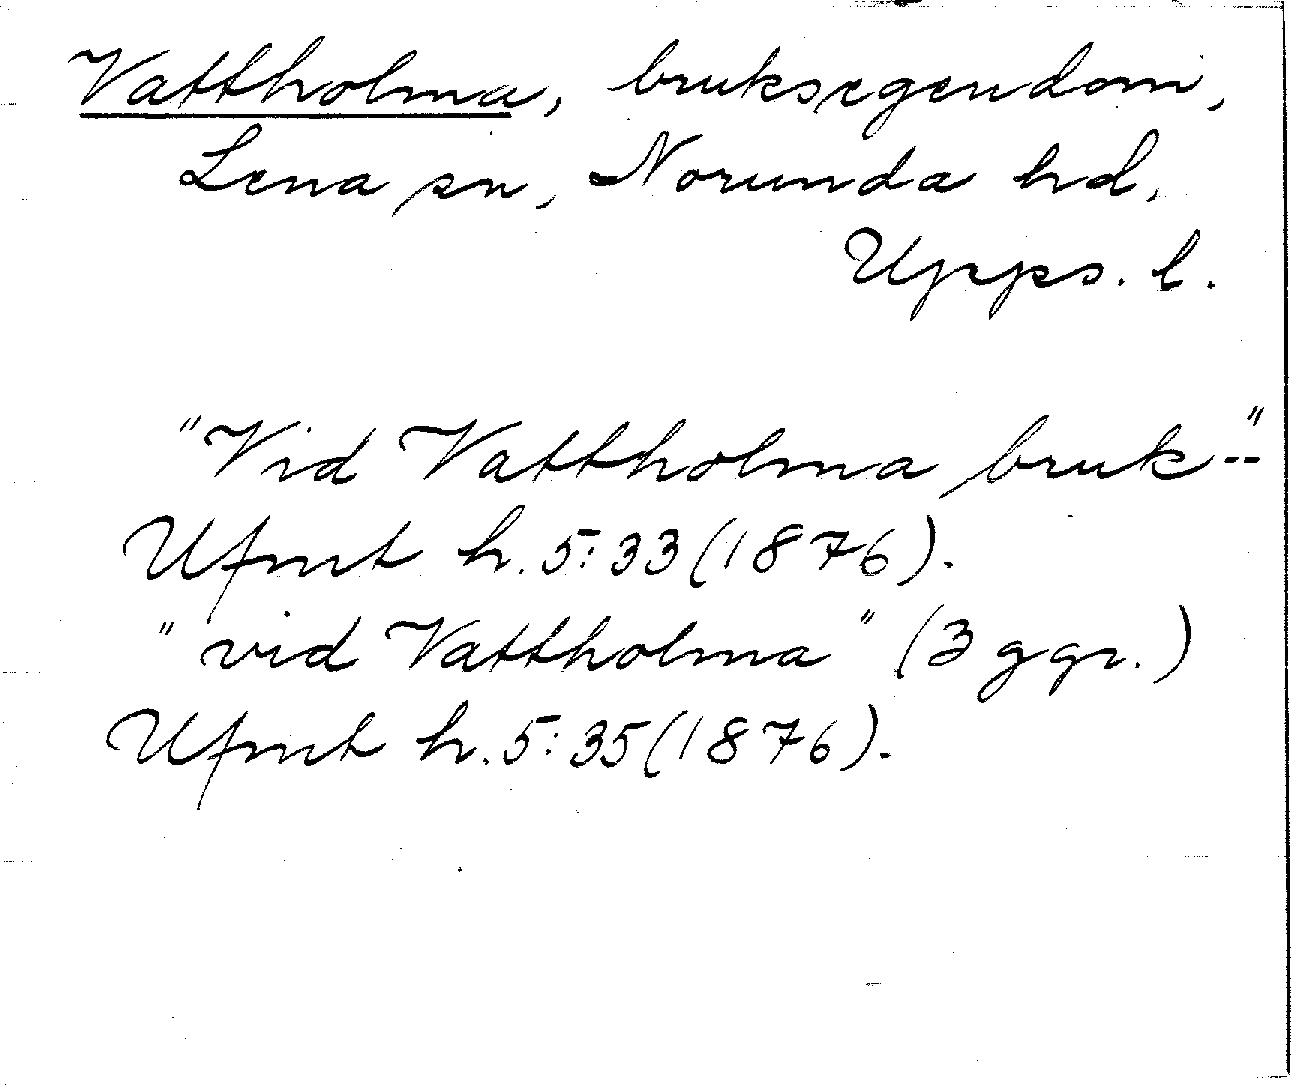 Vattholma, bruksegendom,
Lena sn, Norunda hd,
Upps. l.
"Vid Vattholma bruk--"
Ufmt h. 5:33 (1876).
"vid Vattholma" (3 ggr.)
Ufmt h. 5:35 (1876).